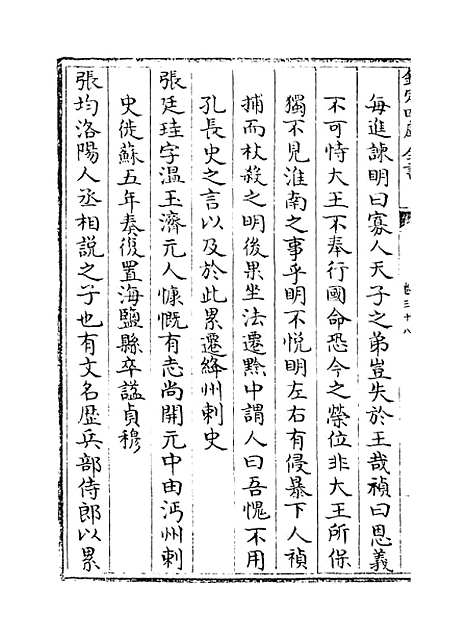 欽定四庫全書
卷三十八
每進諫明曰寡人天子之弟豈失於王哉禎曰恩義
不可恃大王不奉行國命恐今之榮位非大王所保
獨不見淮南之事乎明不悦明左右有侵暴下人禎
捕而杖殺之明後果坐法遷黔中謂人曰吾愧不用
孔長史之言以及於此累遷絳州刺史
張廷珪字溫玉濟元人慷慨有志尚開元中由沔州刺
史徙蘇五年奏復置海鹽縣卒諡貞穆
張均洛陽人丞相說之子也有文名歴兵部侍郎以累